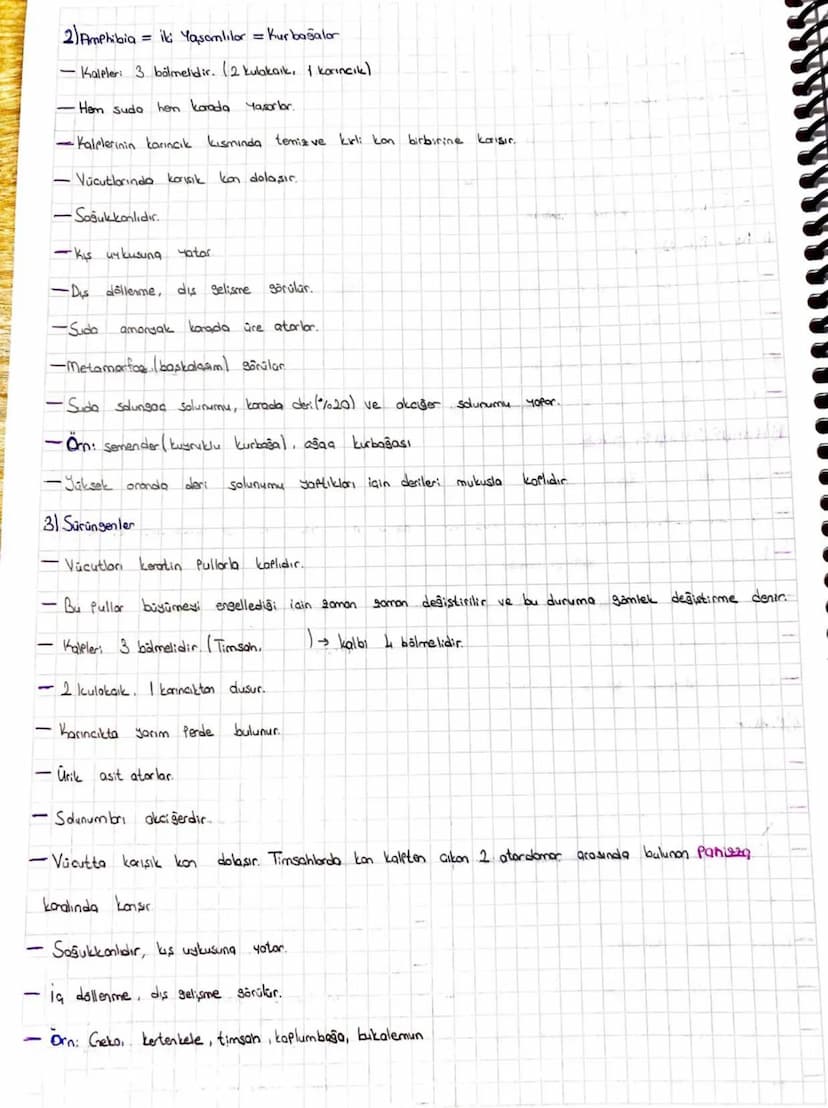 2) Amphibia = iki Yaşamlılar = Kurbağalar
— Kalpleri 3 bölmelidir. (2 kulakcık, 1 karıncık)
— Hem suda hem karada yaşarlar.
— Kalplerinin karıncık kısmında temiz ve kirli kan birbirine karışır.
— Vücutlarında karışık kan dolaşır.
— Soğukkanlıdır.
— Kış uykusuna yatar
— Dış döllenme, dış gelişme görülür.
— Suda amonyak karada üre atarlar.
— Metamorfoz (başkalaşım) görülür
— Suda solungaç solunumu, karada deri (%20) ve akciğer solunumu yapar.
— Örn: semender (kuyruklu kurbağa), ağaç kurbağası
— Yüksek oranda deri solunumu yaptıkları için derileri mukusla kaplıdır
3) Sürüngenler
— Vücutları keratin pullarla kaplıdır.
— Bu pullar büyümeyi engellediği için zaman zaman değiştirilir ve bu duruma gömlek değiştirme denir.
— Kalpleri 3 bölmelidir. (Timsah, ) → kalbi 4 bölmelidir.
— 2 kulakcık, 1 karıncıktan oluşur.
— Karıncıkta yarım perde bulunur.
— Ürik asit atarlar.
— Solunumları akciğerdir.
— Vücutta karışık kan dolaşır. Timsahlarda kan kalpten çıkan 2 atardamar arasında bulunan Panizza
kanalında karışır
— Soğukkanlıdır, kış uykusuna yatar.
— iç döllenme, dış gelişme görülür.
— Örn: Geko, kertenkele, timsah, kaplumbağa, bukalemun